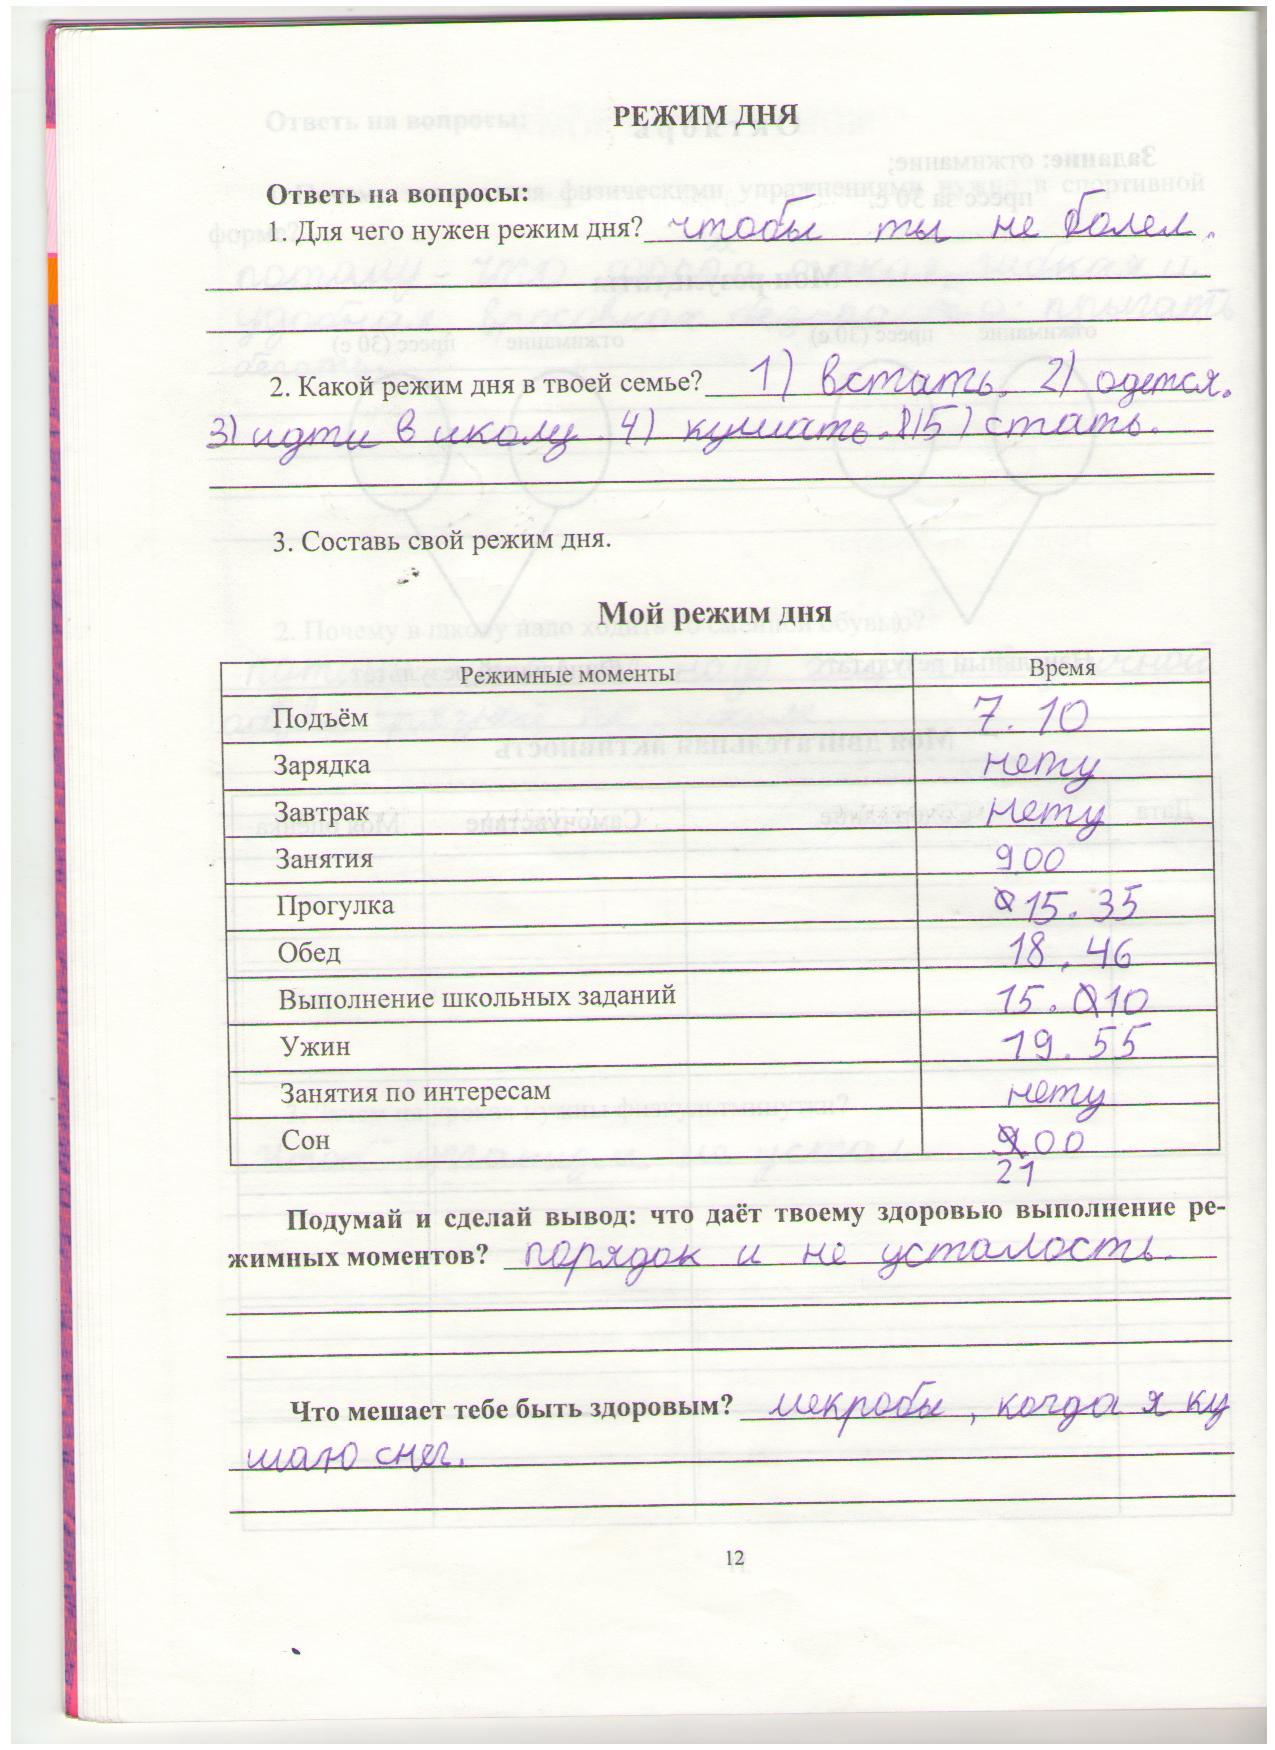 РЕЖИМ ДНЯ
Ответь на вопросы:
1. Для чего нужен режим дня? чтобы ты не болел.
2. Какой режим дня в твоей семье? 1) встать. 2) одется.
3) идти в школу. 4) кушать. 5) стать.
3. Составь свой режим дня.
Мой режим дня
Режимные моменты Время
Подъём 7.10
Зарядка нету
Завтрак нету
Занятия 9.00
Прогулка 15.35
Обед 18.46
Выполнение школьных заданий 15.10
Ужин 19.55
Занятия по интересам нету
Сон 9 00
21
Подумай и сделай вывод: что даёт твоему здоровью выполнение ре-
жимных моментов? порядок и не усталость.
Что мешает тебе быть здоровым? мекробы, когда я ку
шаю снег.
12